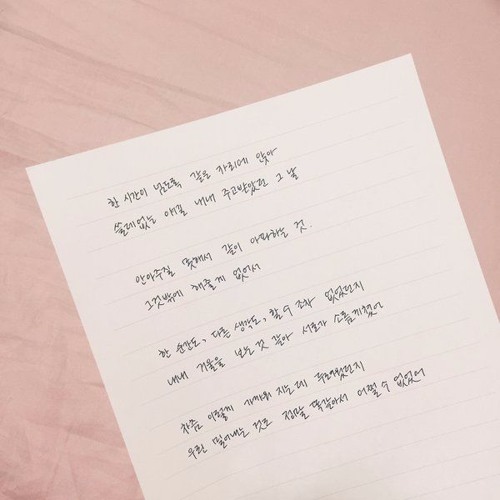 한 시간이 넘도록 같은 자리에 앉아
쓸데없는 얘길 내내 주고받았던 그 날
안아주질 못해서 같이 아파하는 것.
그것밖에 해줄게 없어서
한 순간도, 다른 생각도, 할 수 조차 없었던지
내내 거울을 보는 것 같아 서로가 소름끼쳤어
차츰 이렇게 가까워 지는데 두려웠던지
우린 밀어내는 것도 정말 똑같아서 어쩔 수 없었어